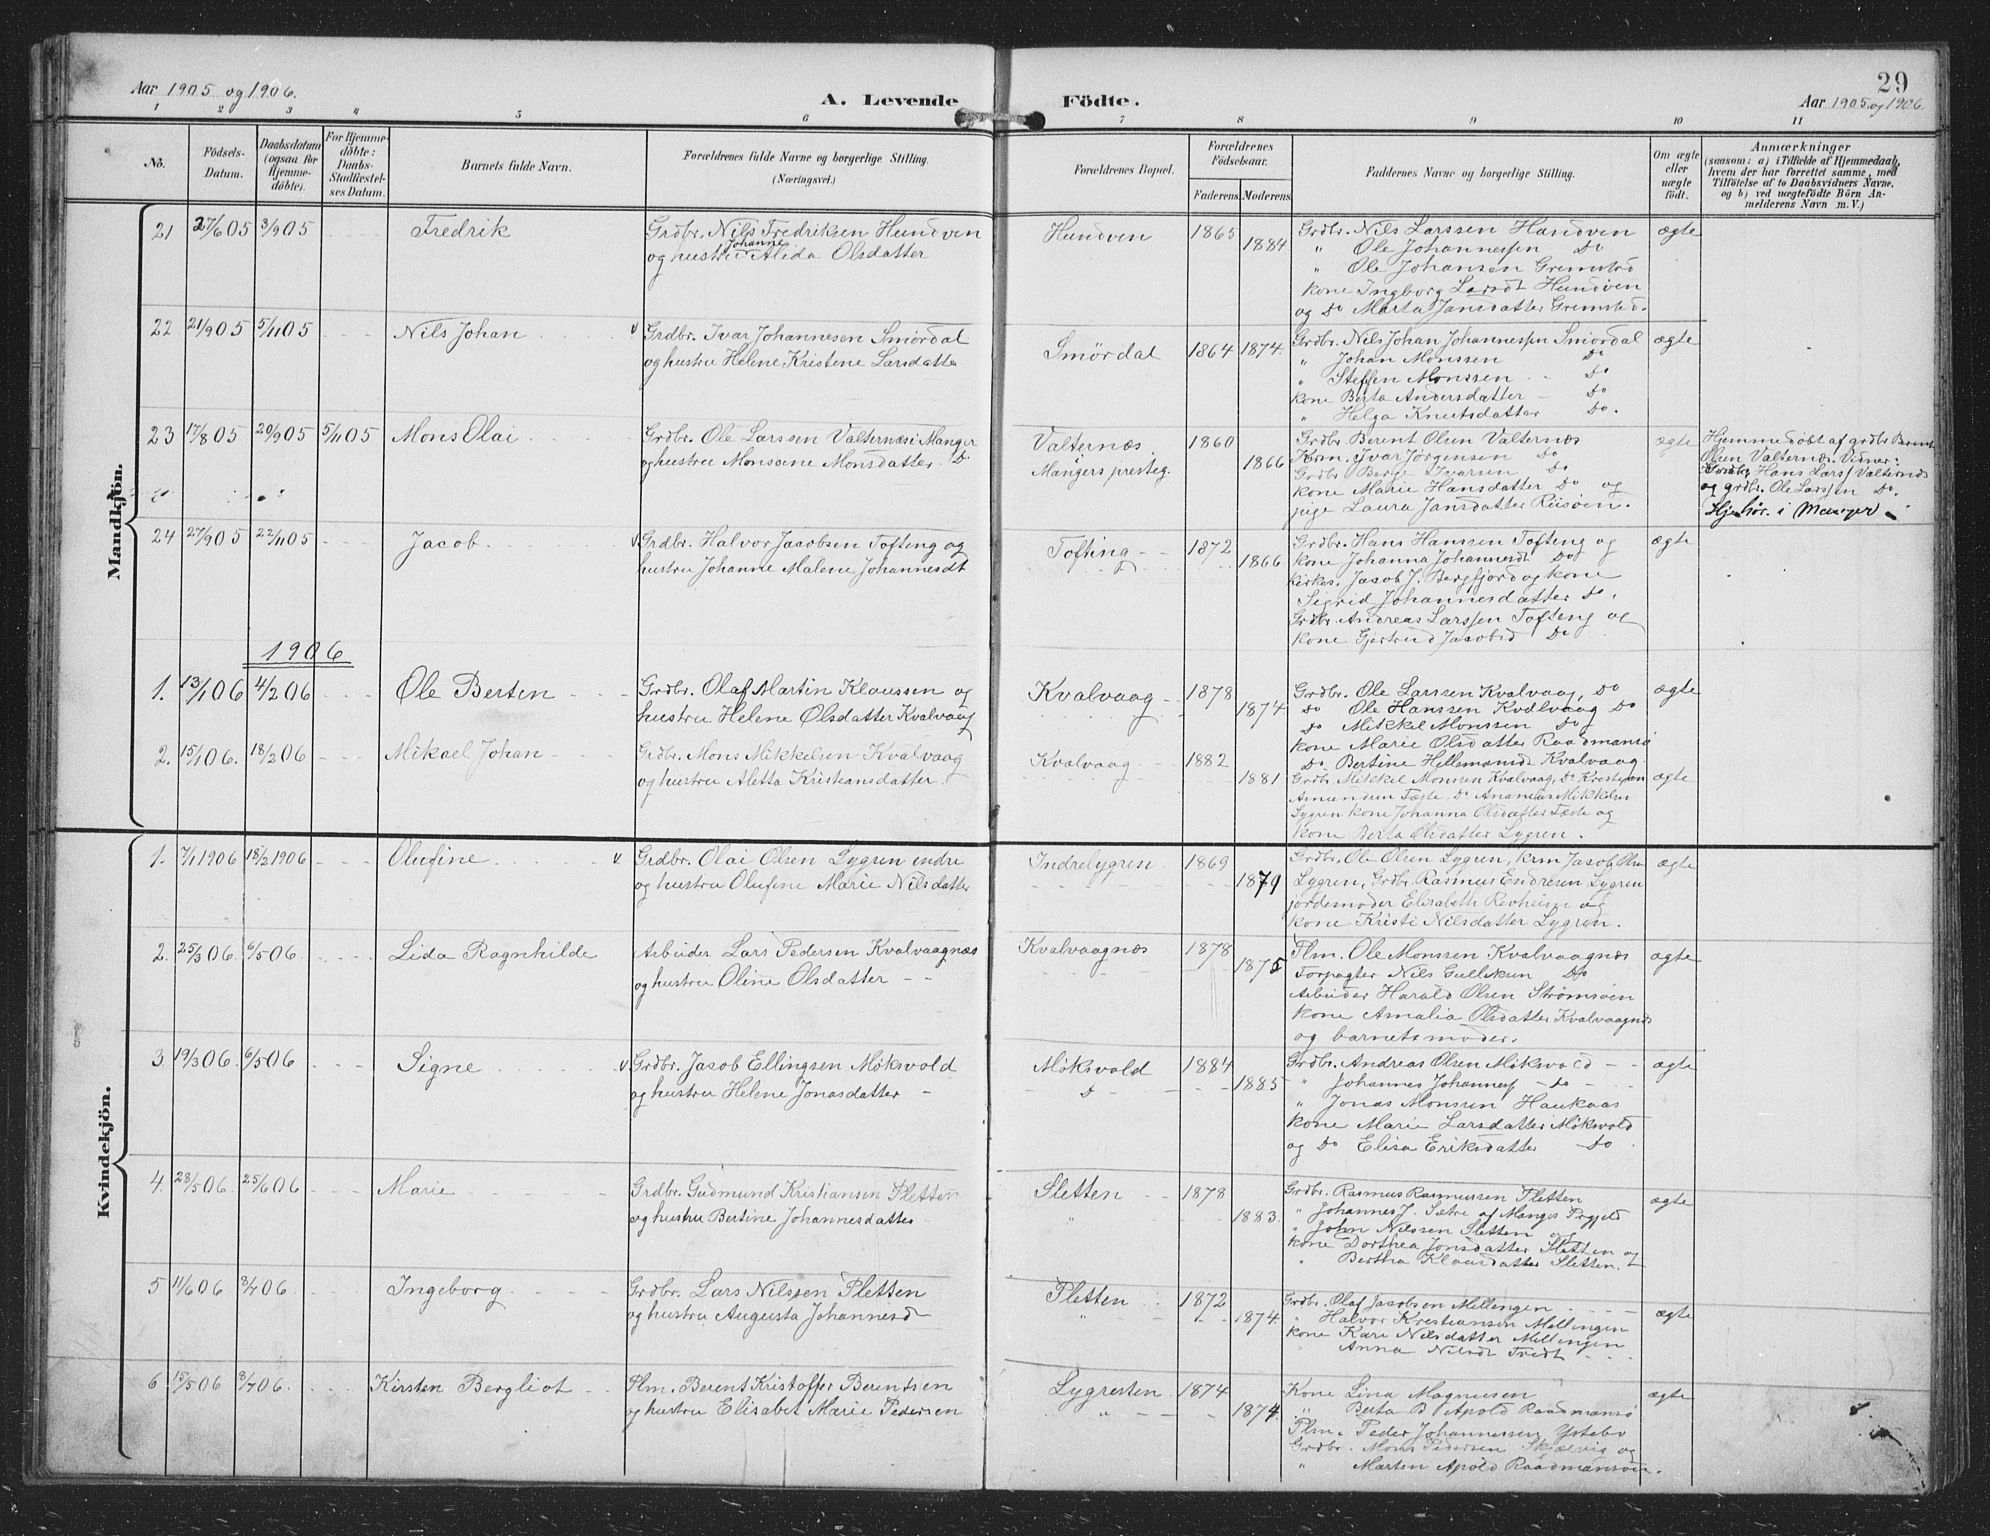 29
Aar 1905 og 1906.
A. Levende Födte.
Aar 1905 og 1906
1 2 3 4 5 6 7 8 9 10 11
No.
Födsels-Datum.
Daabsdatum (ogsaa for Hjemme-døbte).
For Hjemme-døbte: Daabs-Stadfæstel-ses Datum.
Barnets fulde Navn.
Forældrenes fulde Navne og borgerlige Stilling. (Næringsvei.)
Forældrenes Bopæl.
Forældrenes Födselsaar.
Faderens Moderens
Faddernes Navne og borgerlige Stilling.
Om ægte eller uægte födt.
Anmærkninger
(saasom: a) i Tilfælde af Hjemmedaab,
hvem der har forrettet samme, med
Tilföielse af to Daabsvidners Navne,
og b) ved uægtefödte Börn An-
melderens Navn m. V.)
Mandkjön.
21 27/6 05 3/9 05 Fredrik
Grdbr. Nils Fredriksen Hundven
og hustru Johanne Alida Olsdatter
Hundven 1865 1884
Grdbr. Nils Larssen Hundven
" Ole Johannessen Do
" Ole Johansen Gremstad
kone Ingborg Larsdt Hundven
og Do Marta Jansdatter Gremstad.
ægte
22 21/9 05 5/11 05 Nils Johan
Grdbr. Ivar Johannesen Smördal
og hustru Helene Kristene Larsdatte
Smördal 1864 1874.
Grdbr. Nils Johan Johannessen Smördal
" Johan Monssen Do
" Steffen Monssen Do
kone Berta Andersdatter Do
" Helga Knutsdatter Do.
ægte
23 17/8 05 20/9 05 5/11 05 Mons Olai
Grdbr. Ole Larssen Valternæs i Manger
og hustru Monsine Monsdatter Do
Valternæs
Mangers presteg. 1860 1866
Grdbr Berent Olsen Valternæs
Krm. Ivar Jørgensen Do
Grdbr Berge Ivarsen Do
kone Marie Hansdatter Do og
pige Laura Jansdatter Risøen.
ægte
Hjemmedøbt af grdbr Berent
Olsen Valternæs. Vidner:
Grdbr Hans Larss Valternæs
og grdbr. Ole Larssen Do.
Hjehör. i Manger
24 27/9 05 22/11 05 Jacob
Grdbr. Halvor Jacobsen Tofting og
hustru Johanne Malene Johannesdt
Tofting 1872 1866
Grdbr. Hans Hanssen Tofteng og
kone Johanna Johannesdt Do
Kirkes. Jasob J. Bergfjord og kone
Sigrid Johannesdatter Do.
Grdbr. Andreas Larssen Tofteng og
kone Gjertrud Jacobsd Do
ægte
1906
1. 13/1 06 4/2 06 Ole Berten
Grdbr. Olaf Martin Klaussen og
hustru Helene Olsdatter Kvalvaag
Kvalvaag 1878 1874
Grdbr. Ole Larssen Kvalvaag, Do
Do Ole Hanssen Kvalvaag Do
Do Mikkel Monssen Do
kone Marie Olsdatter Raadmansø
Do Bertine Hellemansd Kvalvaag
ægte
2. 15/1 06. 18/2 06 Mikael Johan
Grdbr. Mons Mikkelsen Kvalvaag
og hustru Aletta Kristiansdatter
Kvalvaag 1882 1881
Grdbr. Mikkel Monsen Kvalvaag, Do Kristian
Amundsen Fæste, Do Ananias Mikkelsen
Lygren kone Johanna Olsdatter Fæste og
kone Berta Olsdatter Lygren.
ægte
Kvindekjön.
1. 7/1 1906 18/2 1906 Olufine
Grdbr. Olai Olsen Lygren indre
og hustru Olufine Marie Nilsdatter
Indrelygren 1869 1879
Grdbr. Ole Olsen Lygren, krm Jacob Olsen
Lygren, Grdbr. Rasmus Endresen Lygren
jordemoder Elisabeth Revheim og
kone Kristi Nilsdatter Lygren.
ægte
2. 25/3 06. 6/5 06 Lida Ragnhilde
Arbeider Lars Pedersen Kvalvaagnæs
og hustru Oline Olsdatter
Kvalvaagnæs 1878 1875
Plm. Ole Monssen Kvalvaagnæs
Forpagter Nils Gulliksen Do
Arbeider Harald Olsen Strømsøen
kone Amalia Olsdatter Kvalvaagnæs
og barnets moder.
ægte
3 19/3 06 6/5 06 Signe
Grdbr. Jacob Ellingsen Möksvold
og hustru Helene Jonasdatter
Möksvold 1884 1885
Grdbr. Andreas Olsen Möksvold
" Johannes Johannes Do
" Jonas Monssen Haukaas
kone Marie Larsdatter Möksvold
og Do Elisa Eriksdatter Do
ægte
4. 28/5 06. 25/6 06 Marie
Grdbr. Gudmund Kristiansen Sletten
og hustru Bertine Johannesdatter
Sletten 1878 1883.
Grdbr. Rasmus Rasmussen Sletten
" Johannes J. Sætre af Manger Prgjeld
" John Nilssen Sletten og
kone Dorthea Jonsdatter Sletten og
" Bertha Klausdatter Sletten.
ægte
5 11/6 06 8/7 06. Ingeborg
Grdbr. Lars Nilssen Sletten
og hustru Augusta Johannesd
Sletten 1872 1874.
Grdbr. Olaf Jacobson Mellingen
" Halvor Kristiansen Mellingen
kone Kari Nilsdatter Mellingen
Anna Nilsdt Tvedt
ægte
6 15/5 06 8/7 06. Kirsten Bergliot
Plm. Berent Kristoffer Berentsen
og hustru Elisabet Marie Pedersen
Lygresten 1874 1874
Kone Lina Magnusen
" Berta B Apold Raadmansø
Plm. Peder Johannessen Ystebö
Grdbr. Mons Pedersen Skjelvig og
" Marten Apold Raadmansøen.
ægte